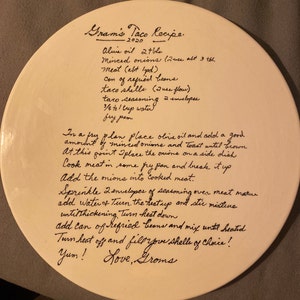 Gram's Taco Recipe
2020
Olive oil 2 tbls
Minced onions (2 use abt 3 tbl
meat (abt 1 pd)
Can of refried beans
taco shells (2 use flour)
taco seasoning 2 envelopes
3/4 cup water
fry pan
In a fry plan place olive oil and add a good
amount of minced onions and toast until brown
At this point I place the onions on a side dish
Cook meat in same fry pan and break it up
Add the onions into cooked meat.
Sprinkle 2 envelopes of seasoning over meat mixture
add water & Turn the heat up and stir mixture
until thickening, Turn heat down
add can of refried beans and mix until heated
Turn heat off and fill your shells of choice!
Yum! Love, Grams